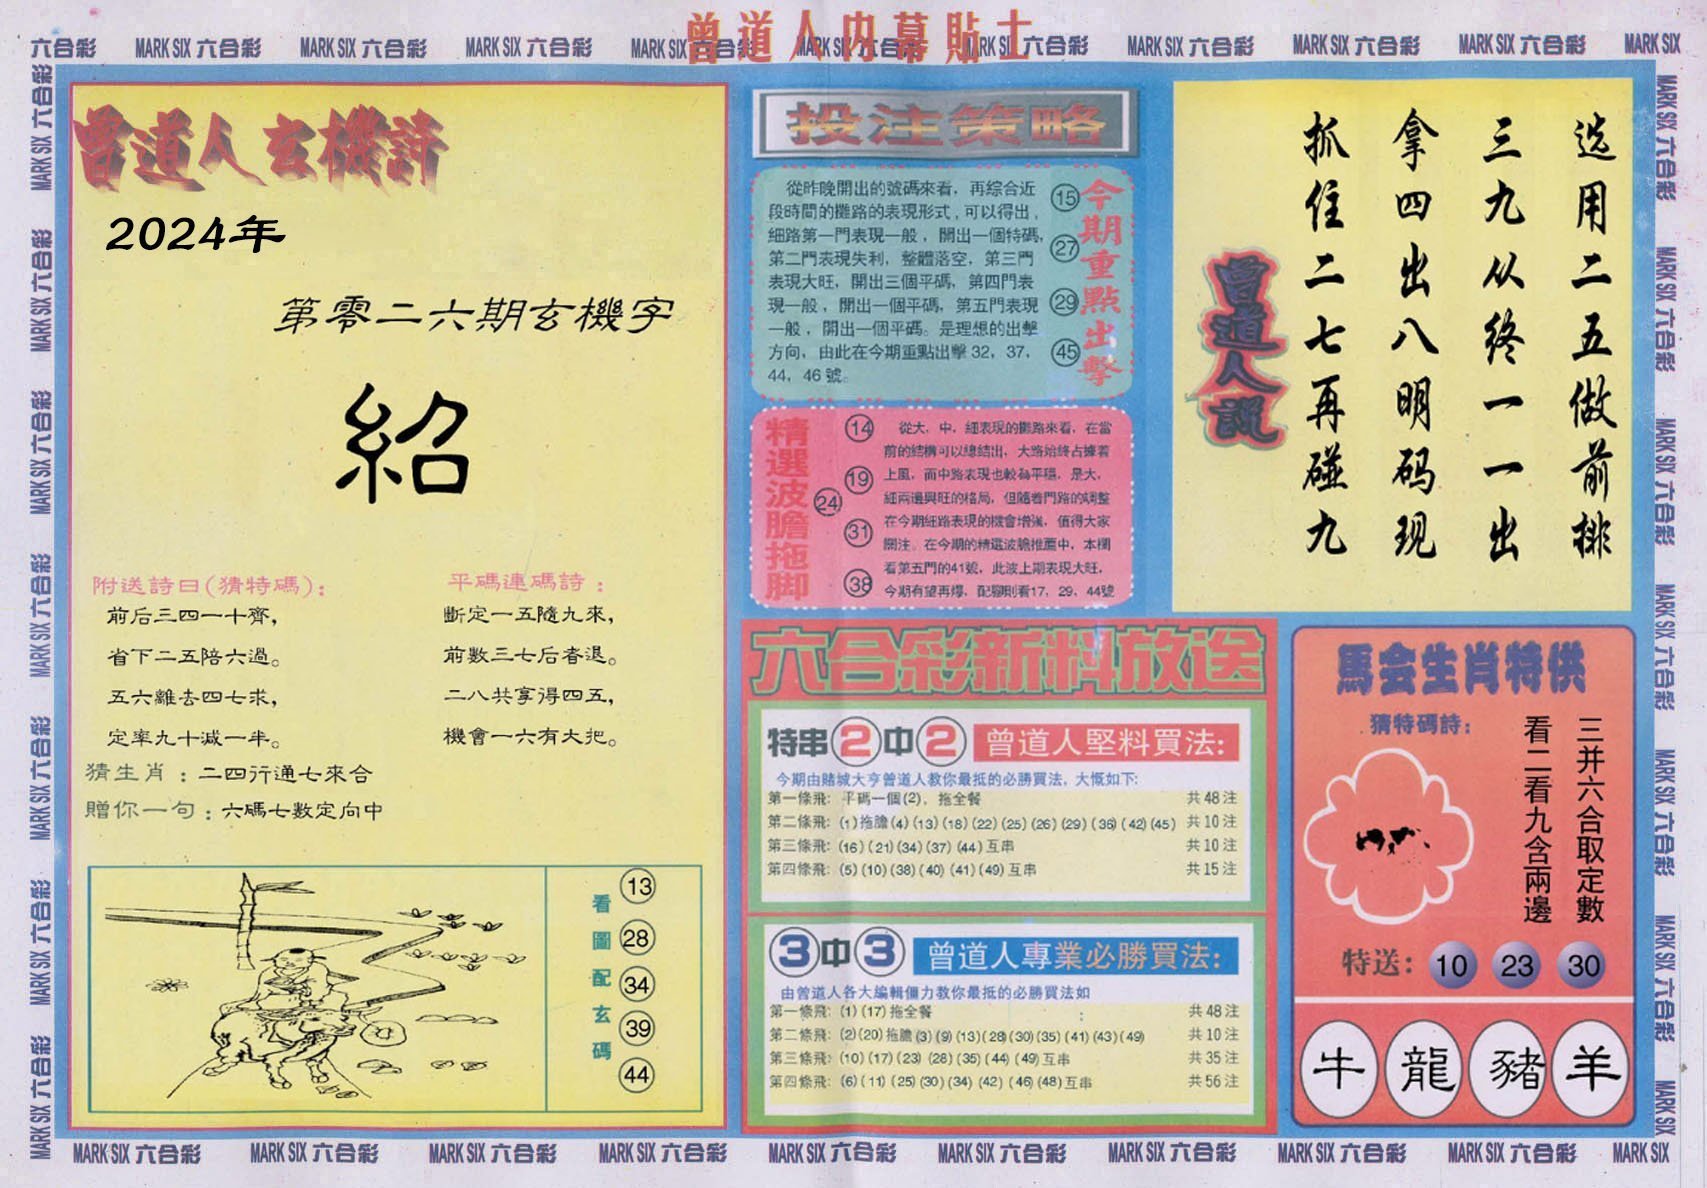 曾道人内幕貼士
六合彩 MARK SIX 六合彩 MARK SIX 六合彩 MARK SIX 六合彩 MARK SIX 六合彩 MARK SIX 六合彩 MARK SIX 六合彩 MARK SIX 六合彩 MARK SIX 六合彩 MARK SIX 六合彩 MARK SIX
曾道人玄機詩
2024年
第零二六期玄機字
紹
附送詩曰(猜特碼):
前后三四一十齊,
省下二五陪六過。
五六離去四七求,
定率九十減一半。
平碼連碼詩:
斷定一五隨九來,
前數三七后春退。
二八共享得四五,
機會一六有大把。
猜生肖:二四行通七來合
贈你一句:六碼七數定向中
看圖配玄碼
13
28
34
39
44
投注策略
從昨晚開出的號碼來看,再綜合近
段時間的攤路的表現形式,可以得出,
細路第一門表現一般,開出一個特碼,
第二門表現失利,整體落空,第三門
表現大旺,開出三個平碼,第四門表
現一般,開出一個平碼,第五門表現
一般,開出一個平碼。是理想的出擊
方向,由此在今期重點出擊 32, 37,
44, 46 號。
15
27
29
45
今期重點出擊
精選波膽拖脚
14
19
24
31
38
從大,中,細表現的攤路來看,在當
前的結構可以總結出,大路始終占據着
上風,而中路表現也較為平穩,是大,
細兩邊興旺的格局,但隨着門路的調整
在今期細路表現的機會增強,值得大家
關注。在今期的精選波膽推薦中,本欄
看第五門的41號,此波上期表現大旺,
今期有望再爆,配腳則看17, 29, 44號
六合彩新料放送
特串2中2 曾道人堅料買法:
今期由賭城大亨曾道人教你最抵的必勝買法,大慨如下:
第一條飛: 平碼一個(2), 拖全餐 共 48 注
第二條飛: (1) 拖膽 (4) (13) (18) (22) (25) (26) (29) (36) (42) (45) 共 10 注
第三條飛: (16) (21) (34) (37) (44) 互串 共 10 注
第四條飛: (5) (10) (38) (40) (41) (49) 互串 共 15 注
3中3 曾道人專業必勝買法:
由曾道人各大編輯僵力教你最抵的必勝買法如
第一條飛: (1) (17) 拖全餐 共 48 注
第二條飛: (2) (20) 拖膽 (3) (9) (13) (28) (30) (35) (41) (43) (49) 共 10 注
第三條飛: (10) (17) (23) (28) (35) (44) (49) 互串 共 35 注
第四條飛: (6) (11) (25) (30) (34) (42) (46) (48) 互串 共 56 注
选用二五做前排
三九从终一一出
拿四出八明码现
抓住二七再碰九
曾道人説
馬会生肖特供
猜特碼詩:
三并六合取定數
看二看九含兩邊
特送: 10 23 30
牛 龍 豬 羊
MARK SIX 六合彩 MARK SIX 六合彩 MARK SIX 六合彩 MARK SIX 六合彩 MARK SIX 六合彩 MARK SIX 六合彩 MARK SIX 六合彩
MARK SIX 六合彩 MARK SIX 六合彩 MARK SIX 六合彩 MARK SIX 六合彩 MARK SIX 六合彩 MARK SIX 六合彩 MARK SIX
MARK SIX 六合彩 MARK SIX 六合彩 MARK SIX 六合彩 MARK SIX 六合彩 MARK SIX 六合彩 MARK SIX 六合彩 MARK SIX 六合彩 MARK SIX 六合彩 MARK SIX 六合彩 MARK SIX